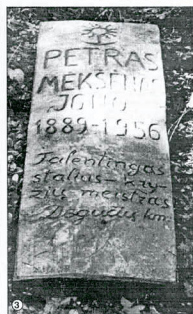 PETRAS
MEKŠĖNAS
JONO
1889-1956
Talentingas
stalius-kry-
žių meistras
Degučių km.
3